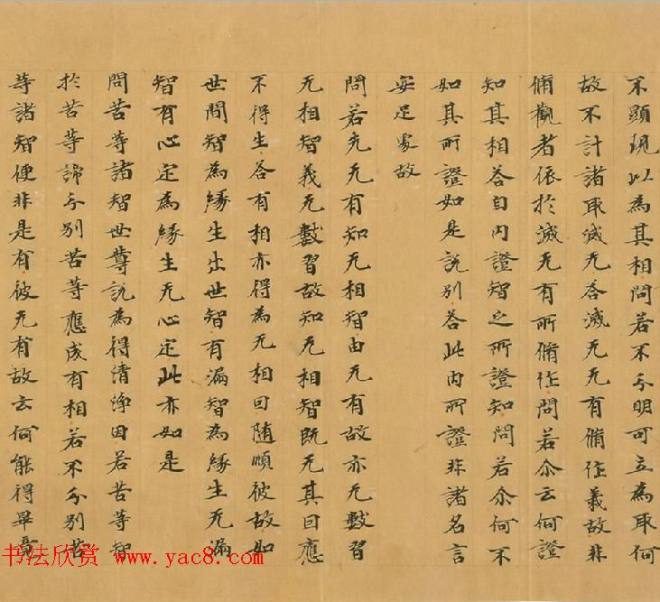 不顯現以為其相問若不分明可立為取何
故不計諸取滅无答滅无无有脩作義故非
脩觀者依於滅无有所脩作問若尒云何證
知其相答自內證智之所證知問若尒何不
如其所證如是說別答此內所證非諸名言
安足處故
問若充无有知无相智由无有故亦无數習
无相智義无數習故知无相智既无其因應
不得生答有相亦得為无相因隨順彼故如
世間智為緣生出世智有漏智為緣生无漏
智有心定為緣生无心定此亦如是
問苦等諸智世尊說為得清淨因若苦等智
於苦等諦分別苦等應成有相若不分別苦
等諸智便非是有彼无有故云何能得畢竟
书法欣赏 www.yac8.com